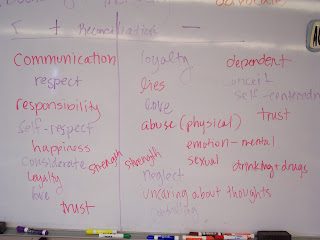 + Reconciliation −
Communication
respect
responsibility
self-respect
happiness
considerate
loyalty
love
trust
strength
loyalty
lies
love
abuse (physical)
emotion - mental
sexual
strength
neglect
uncaring about thoughts
controlling
dependent
conceit
self-centered
trust
drinking + drugs